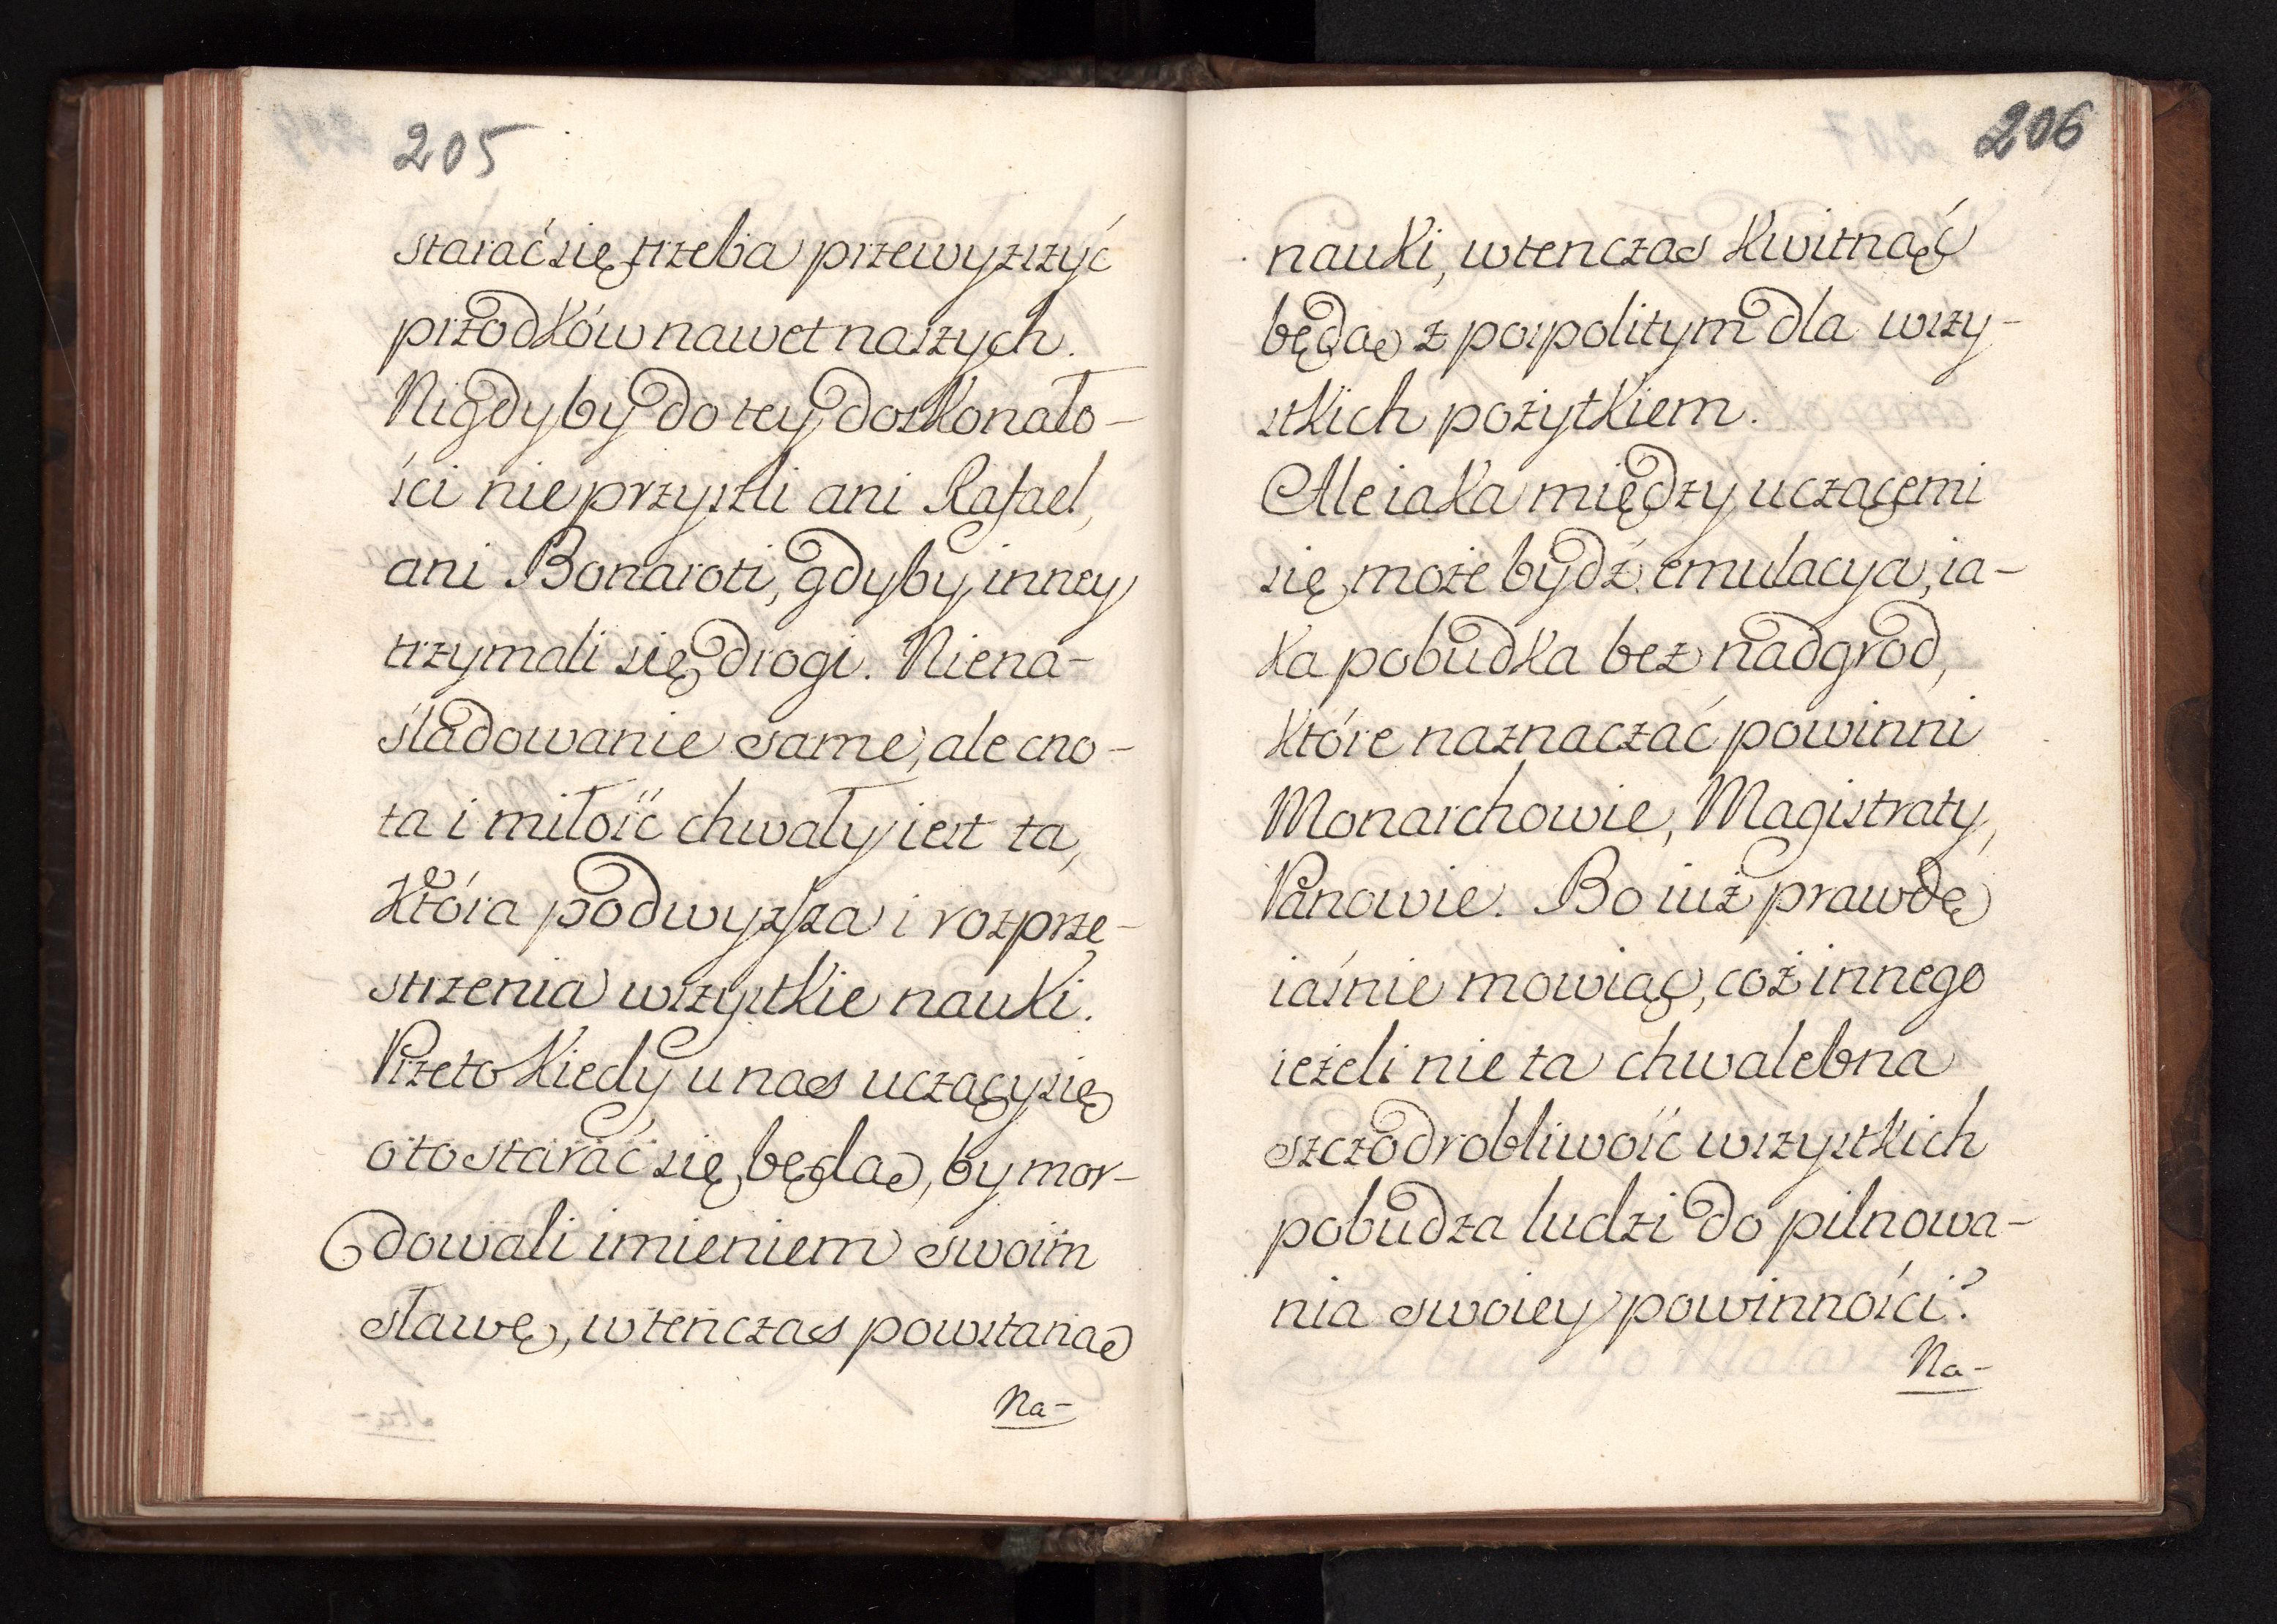 205
starać się trzeba przewyzszyć
przodków nawet naszych.
Nigdyby do tey doskonało-
ści nie przyszli ani Rafael,
ani Bonaroti, gdyby inney
trzymali się drogi. Niena-
śladowanie same, ale cno-
ta i miłość chwały iest ta,
która podwyzsza i rozprze-
strzenia wszystkie nauki.
Przeto kiedy u nas uczący się
o to starać się będą, by mor-
dowali imieniem swoim
sławę, wtenczas powstaną
Na-
206
nauki, wtenczas kwitnąć
będą z pospolitym dla wszy-
stkich pożytkiem.
Ale iaka między uczącemi
się może bydź emulacya, ia-
ka pobudka bez nadgrod,
które naznaczać powinni
Monarchowie, Magistraty,
Panowie. Bo iuż prawdę
iaśnie mowiąc, coż innego
ieżeli nie ta chwalebna
szczodrobliwość wszystkich
pobudza ludzi do pilnowa-
nia swoiey powinności?
Na-